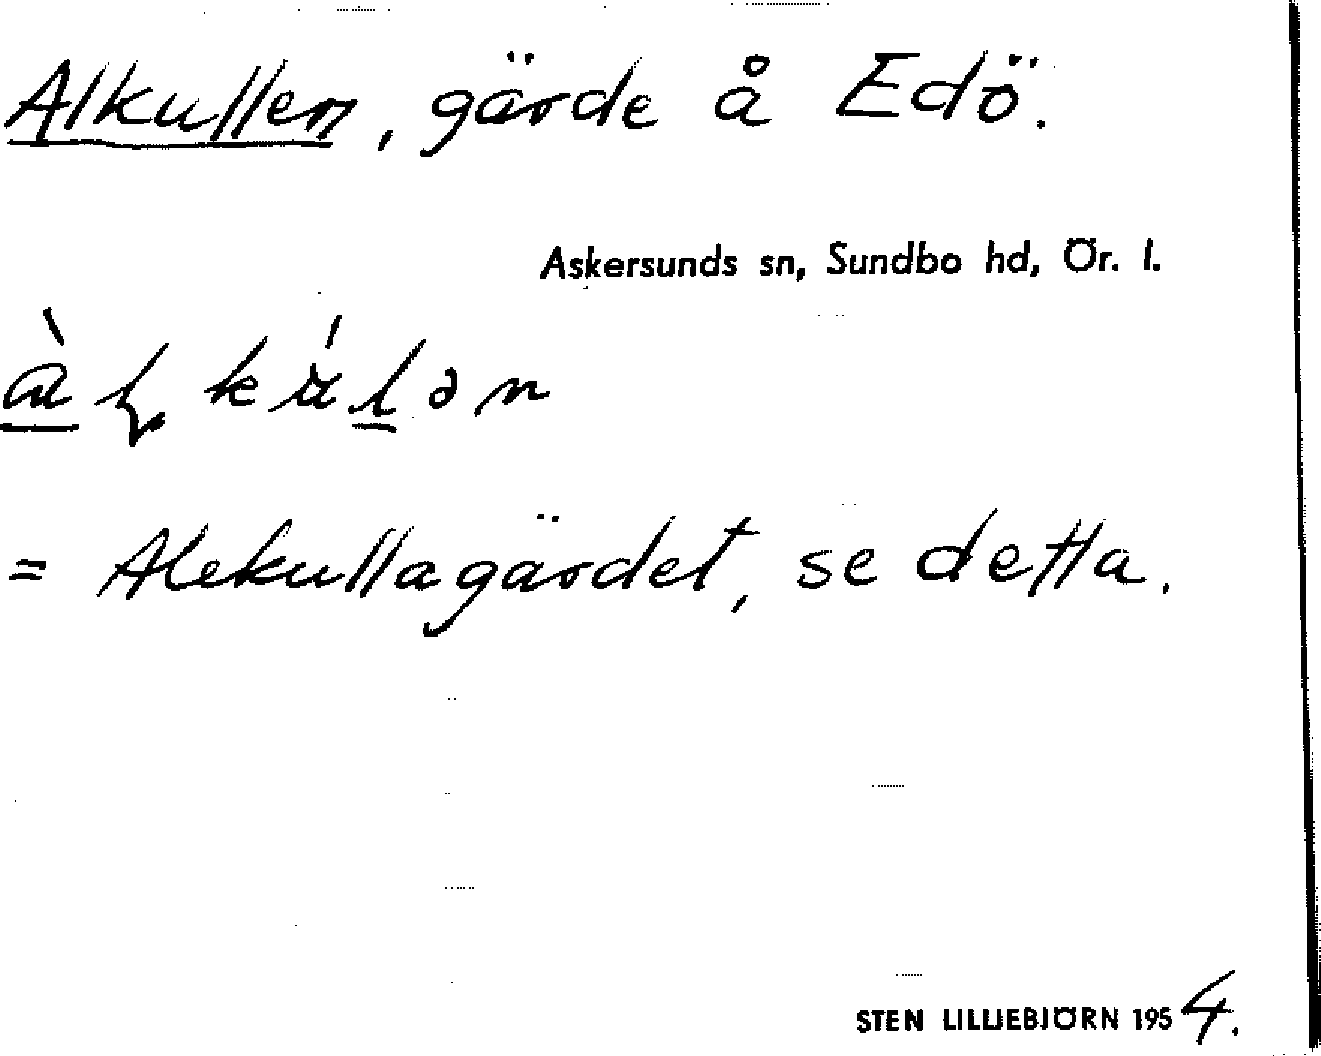 Alkullen, gärde å Edö.
Askersunds sn, Sundbo hd, Ör. l.
= Alekullagärdet, se detta.
STEN LILLIEBJÖRN 1954.